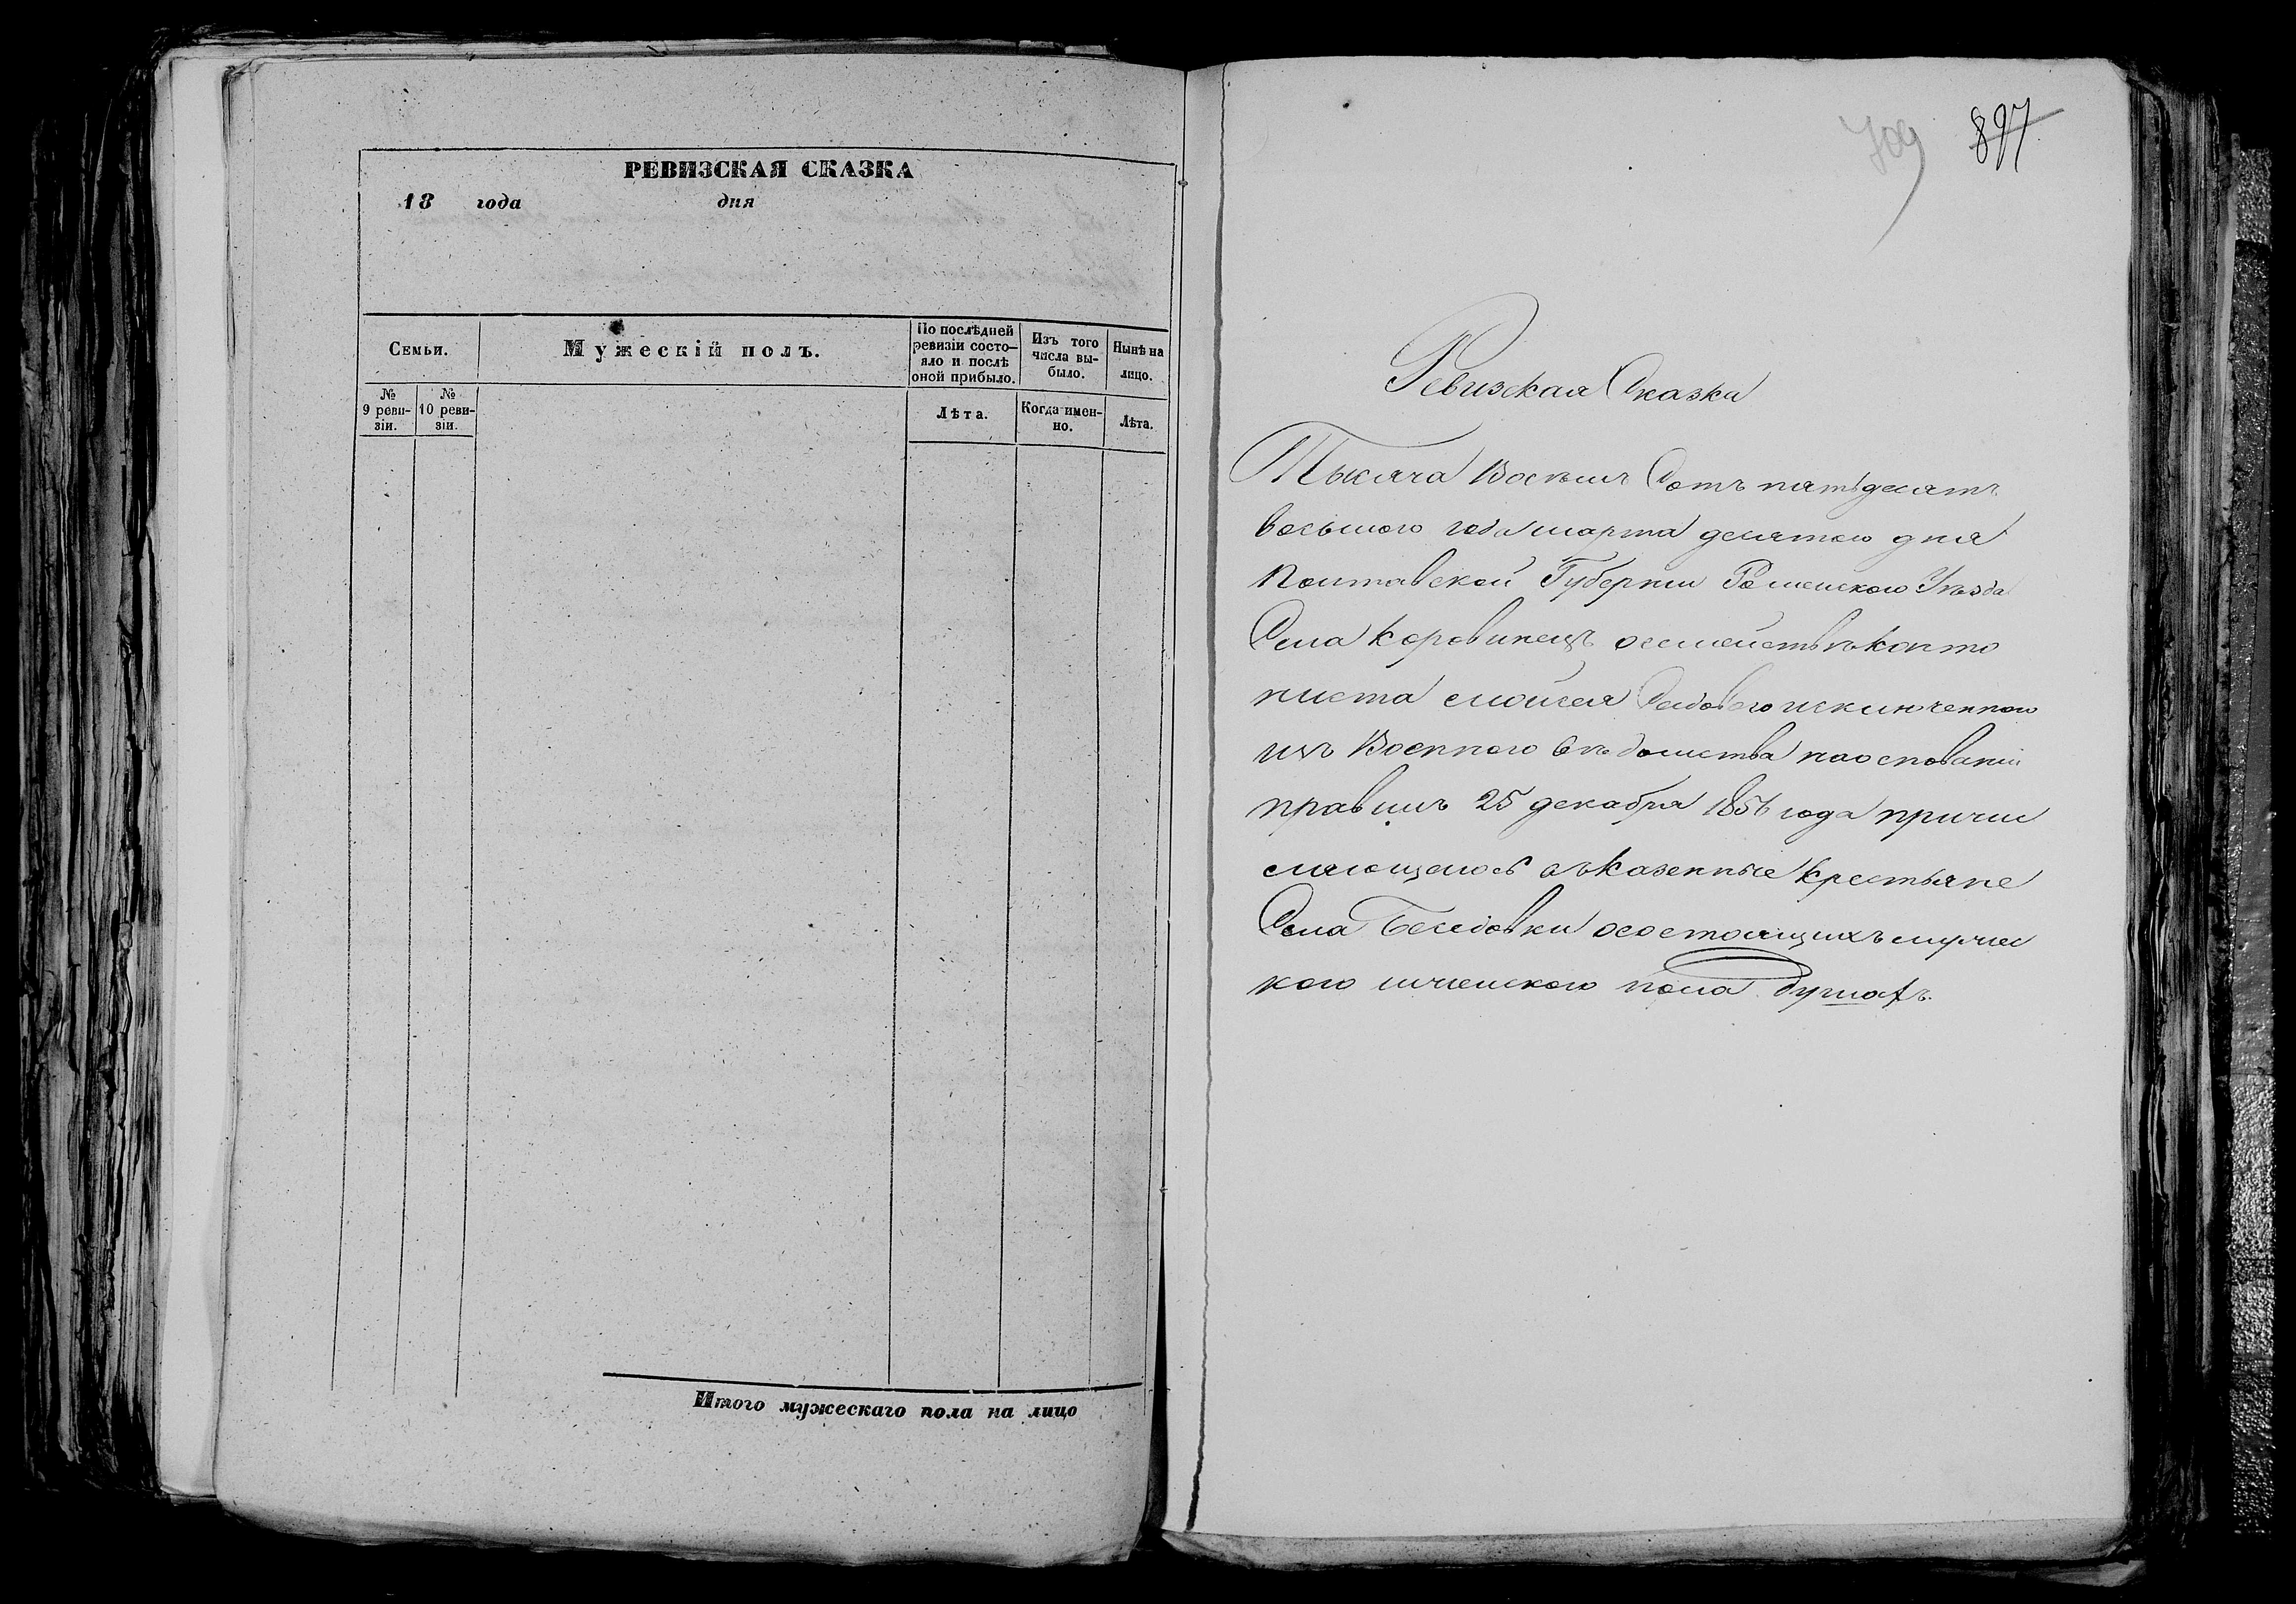 РЕВИЗСКАЯ СКАЗКА
18 года дня
Семьи.
Мужескій полъ.
По послѣдней ревизіи состо-
яло и послѣ оной прибыло.
Изъ того числа вы-
было.
Нынѣ на лицо.
№ 9 реви-
зіи.
№ 10 реви-
зіи.
Лѣта.
Когда имен-
но.
Лѣта.
Итого мужескаго пола на лицо
709 897
Ревизская Сказка
Тысяча Восемъ Сотъ пятьдесятъ
восьмого года марта десятого дня
Полтавской Губернии Роменского Уѣзда
Села Коровинецъ осемействѣ канто
ниста Моисея исключенного
изъ Военного вѣдомства наосновании
правилъ 25 декабря 1856 года причи
сляющегось въказенные крестьяне
Села Беседовки осостоящихъ мужес
кого иженского пола душахъ.